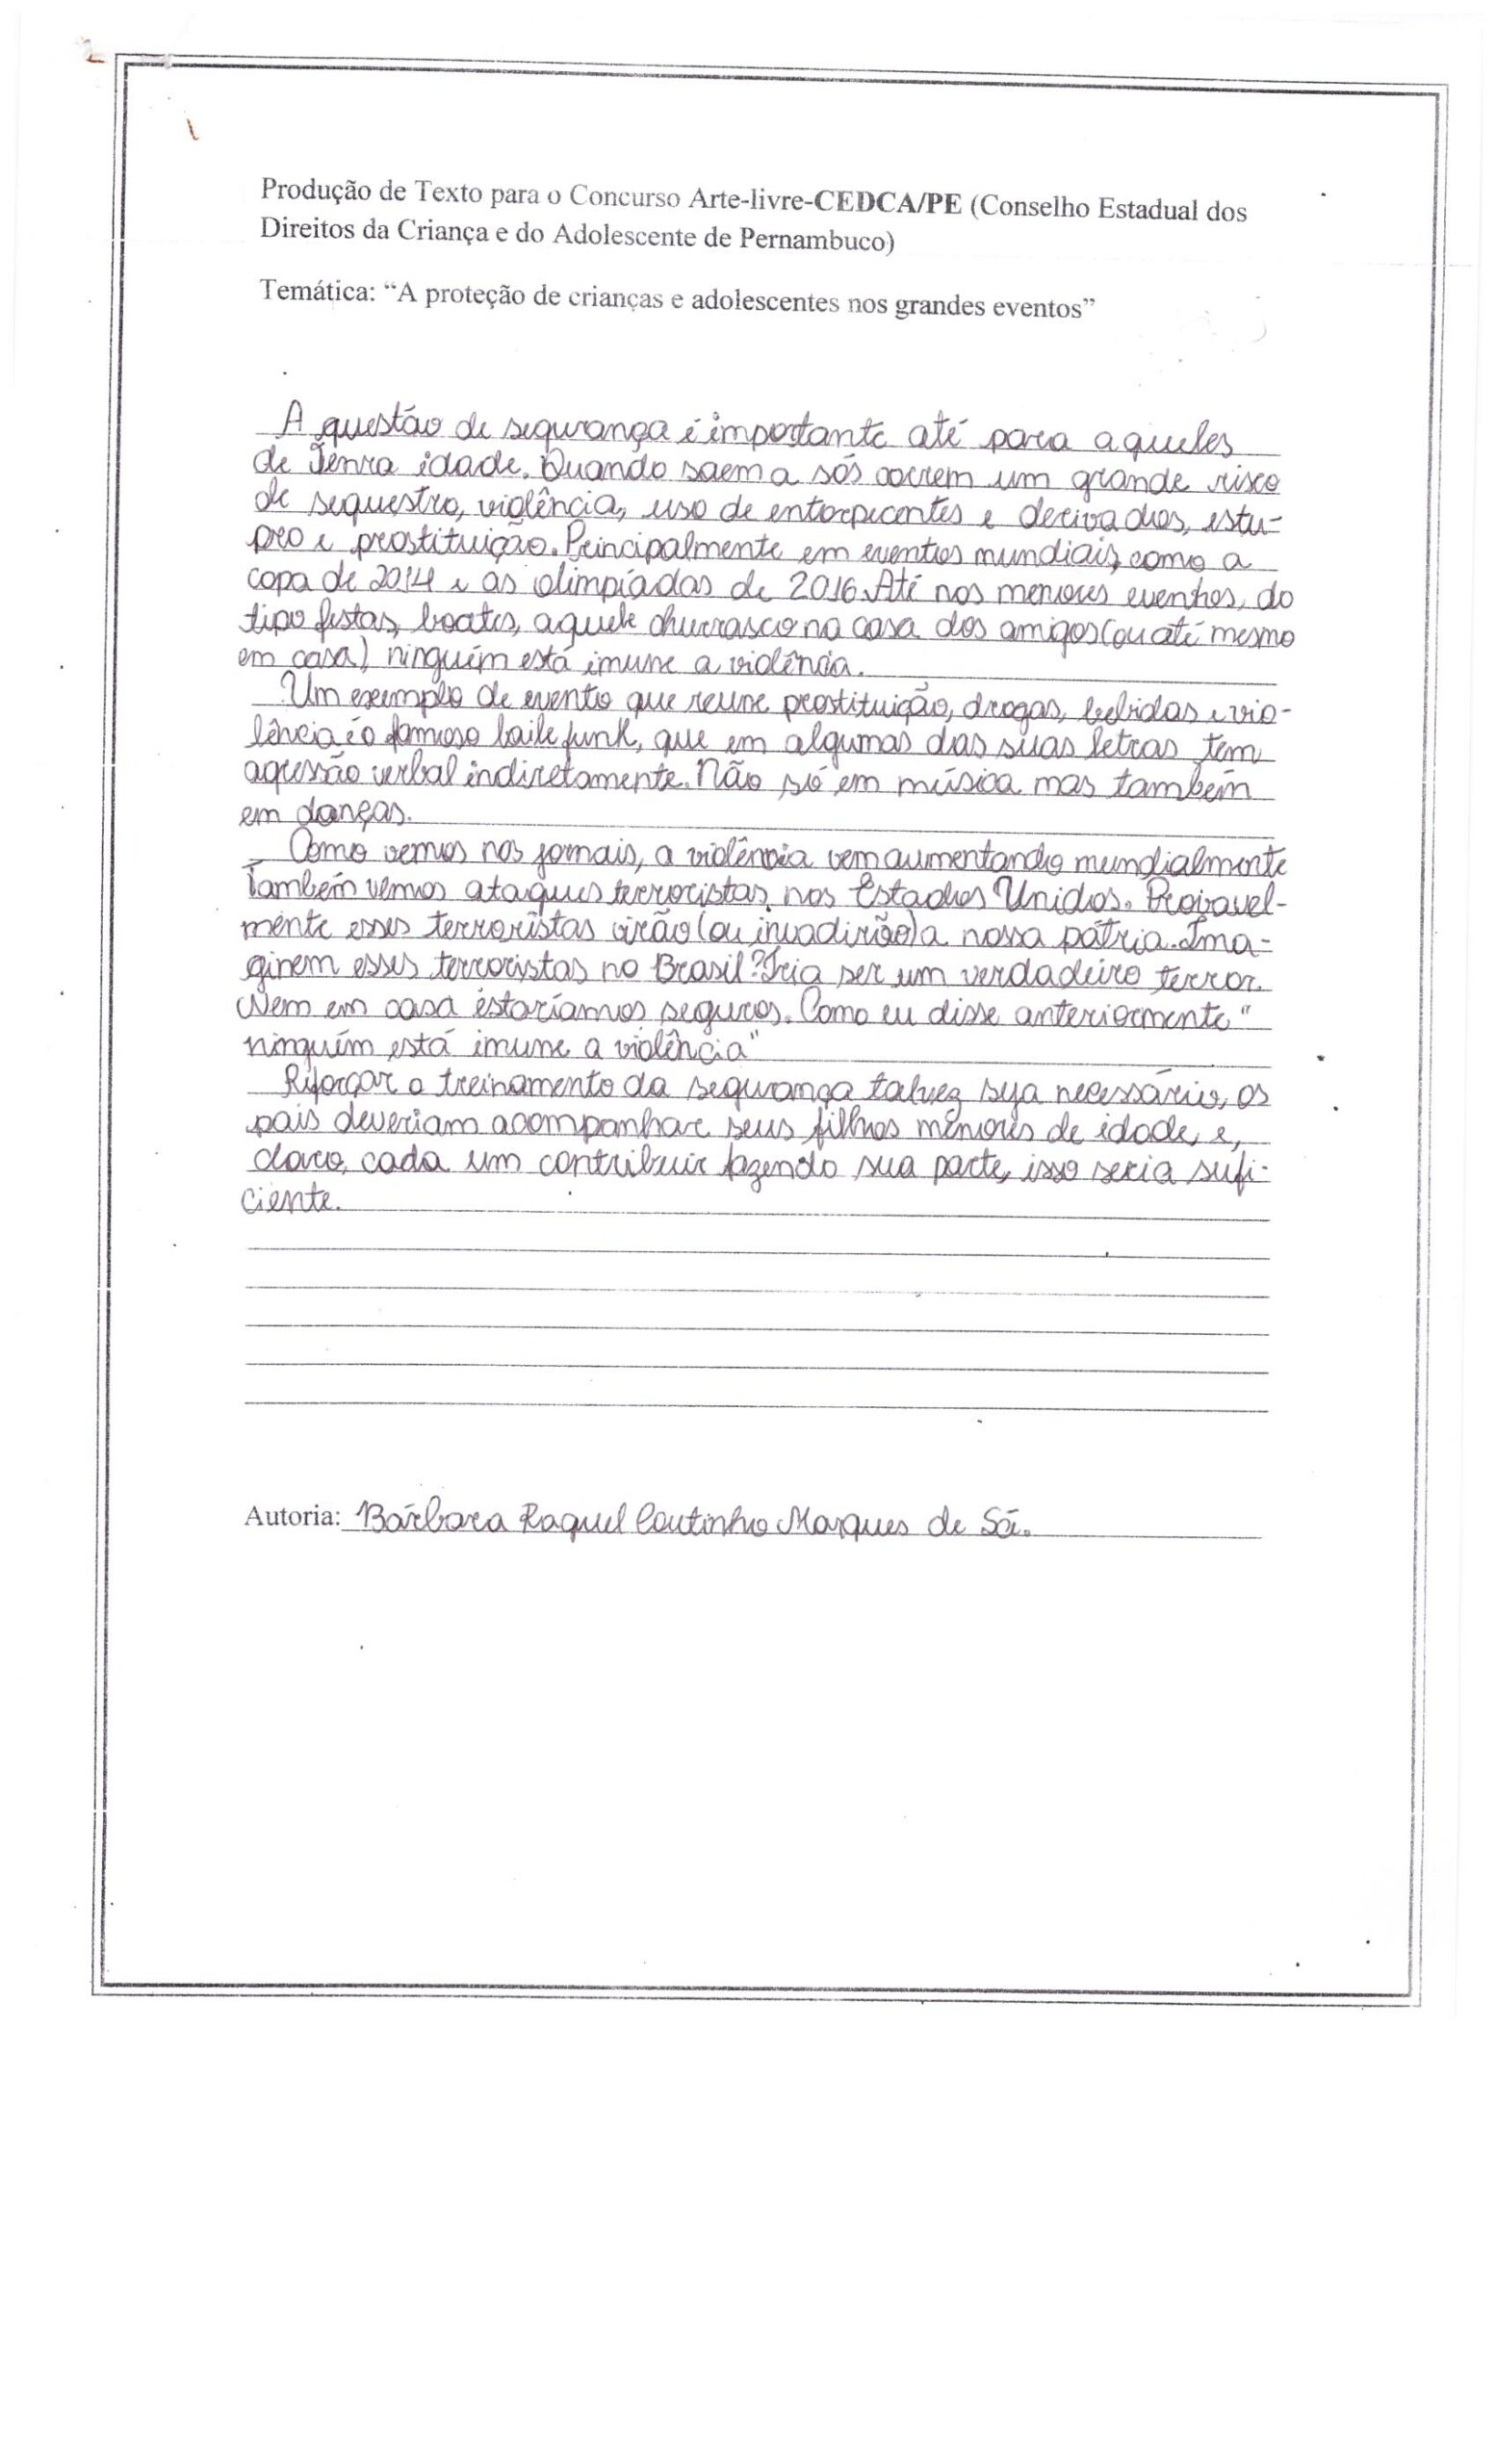 Produção de Texto para o Concurso Arte-livre-CEDCA/PE (Conselho Estadual dos
Direitos da Criança e do Adolescente de Pernambuco)
Temática: “A proteção de crianças e adolescentes nos grandes eventos”
A questão de segurança é importante até para aqueles
de Tenra idade. Quando saem a sós correm um grande risco
de sequestro, violência, uso de entorpecentes e derivados, estu-
pro e prostituição. Principalmente em eventos mundiais, como a
copa de 2014 e as olimpíadas de 2016. Até nos menores eventos, do
tipo festas, boates, aquele churrasco na casa dos amigos (ou até mesmo
em casa) ninguém está imune a violência.
Um exemplo de evento que reune prostituição, drogas, bebidas e vio-
lência é o famoso baile funk, que em algumas das suas letras tem
agressão verbal indiretamente. Não só em música mas também
em danças.
Como vemos nos jornais, a violência vem aumentando mundialmente
Também vemos ataques terroristas nos Estados Unidos. Provavel-
mente esses terroristas virão (ou invadirão) a nossa pátria. Ima-
ginem esses terroristas no Brasil? Iria ser um verdadeiro terror.
Nem em casa estaríamos seguros. Como eu disse anteriormente "
ninguém está imune a violência"
Reforçar o treinamento da segurança talvez seja necessário, os
pais deveriam acompanhar seus filhos menores de idade, e,
claro, cada um contribuir fazendo sua parte, isso seria sufi-
ciente.
Autoria: Bárbara Raquel Coutinho Marques de Sá.